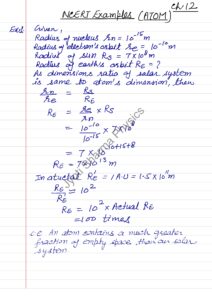 Ch 12
NCERT Examples (ATOM)
Ex1 Given,
Radius of nucleus rn = 10⁻¹⁵m
Radius of electron's orbit re = 10⁻¹⁰m
Radius of sun Rs = 7 × 10⁸m
Radius of earth's orbit RE = ?
As dimensions ratio of solar system
is same to atom's dimension, then
rn/re = Rs/RE
RE = re/rn × Rs
= 10⁻¹⁰/10⁻¹⁵ × 7 × 10⁸
= 7 × 10⁻¹⁰⁺¹⁵⁺⁸
RE = 7 × 10¹³ m
In actual RE' = 1 AU = 1.5 × 10¹¹
RE/RE' = 10²
RE = 10² × Actual RE
= 100 times
i.e An atom contains a much greater
fraction of empty space than our solar
system